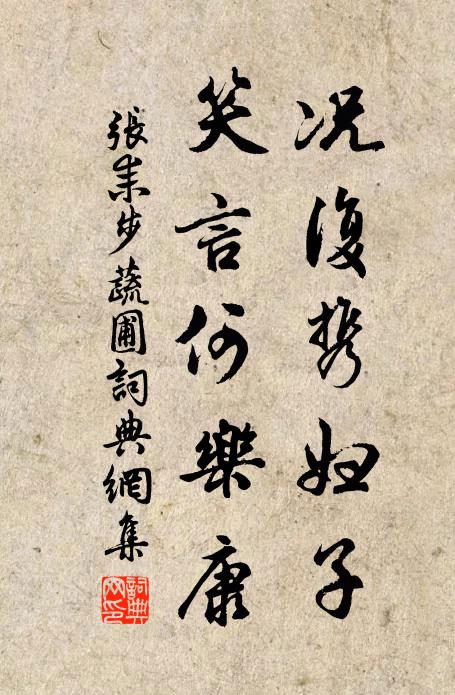 况復携婦子
笑言何樂康
張耒步蔬圃詞典網集
詞典網印